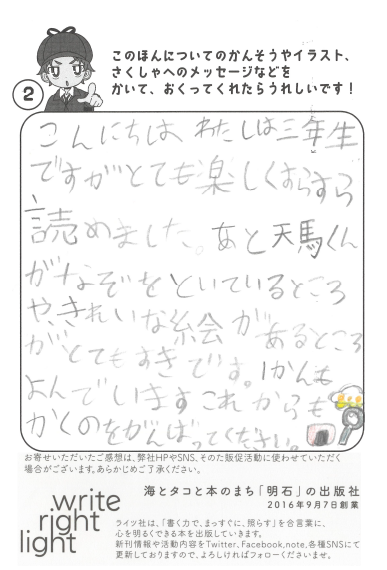 このほんについてのかんそうやイラスト、
さくしゃへのメッセージなどを
かいて、おくってくれたらうれしいです！
2
こんにちは、わたしは三年生
ですがとても楽しくすらすら
読めました。あと天馬くん
がなぞをといているところ
や、きれいな絵があるところ
がとてもすきです。1かんも
よんでいますこれからも
かくのをがんばってください。
お寄せいただいたご感想は、弊社HPやSNS、そのた販促活動に使わせていただく
場合がございます。あらかじめご了承ください。
write
right
light
海とタコと本のまち「明石」の出版社
2016年9月7日創業
ライツ社は、「書く力で、まっすぐに、照らす」を合言葉に、
心を明るくできる本を出版していきます。
新刊情報や活動内容をTwitter、Facebook、note、各種SNSにて
更新しておりますので、よろしければフォローくださいませ。